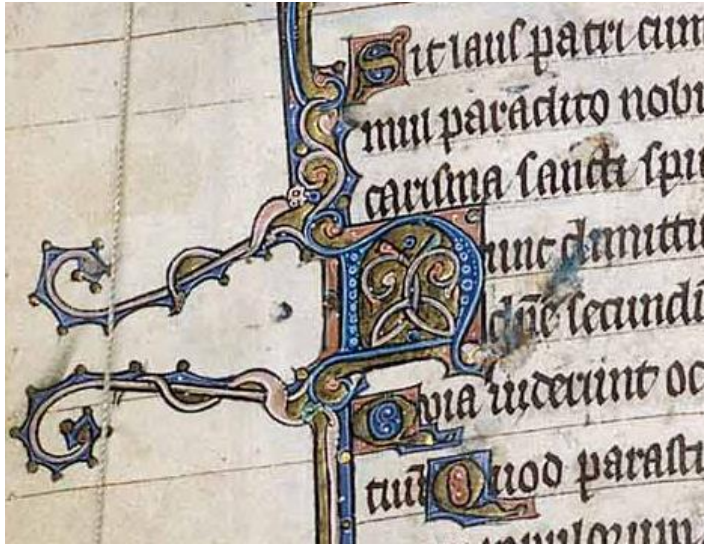 Sit laus patri cum
mul paraclito nobi
carisma sancti spi
Nunc dimittis
dñe secundū
Quia viderunt oc
tuū Quod parasti
populorum